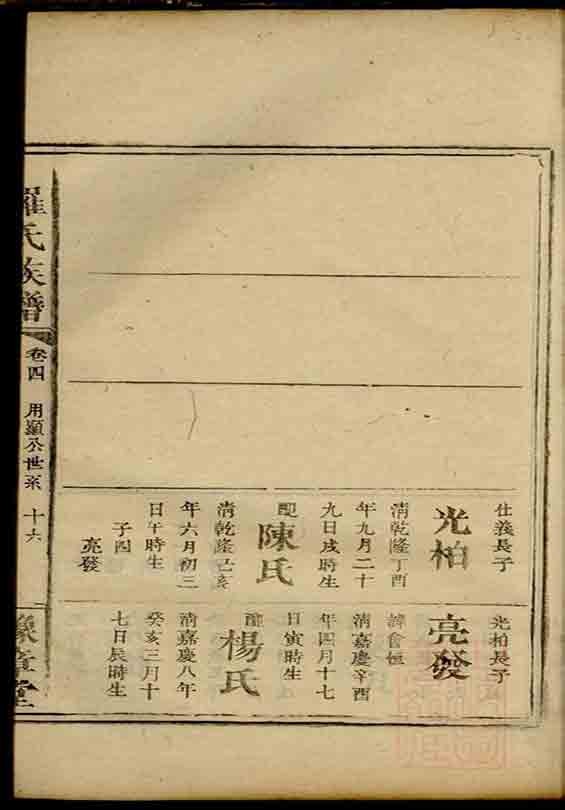 仕義長子
光柏
清乾隆丁酉
年九月二十
九日戌時生
配
陳氏
清乾隆己亥
年六月初三
日午時生
子四
亮發
光柏長子
亮發
諱會恒
清嘉慶辛酉
年四月十七
日寅時生
配
楊氏
清嘉慶八年
癸亥三月十
七日辰時生
羅氏族譜
卷四
用顯公世系
十六
豫章堂